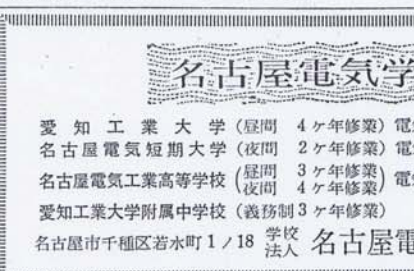 名古屋電気学
愛知工業大学(昼間 4ヶ年修業)電
名古屋電気短期大学(夜間 2ヶ年修業)電
名古屋電気工業高等学校(昼間 3ヶ年修業 夜間 4ヶ年修業)電
愛知工業大学附属中学校(義務制3ヶ年修業)
名古屋市千種区若水町1/18 学校法人 名古屋電